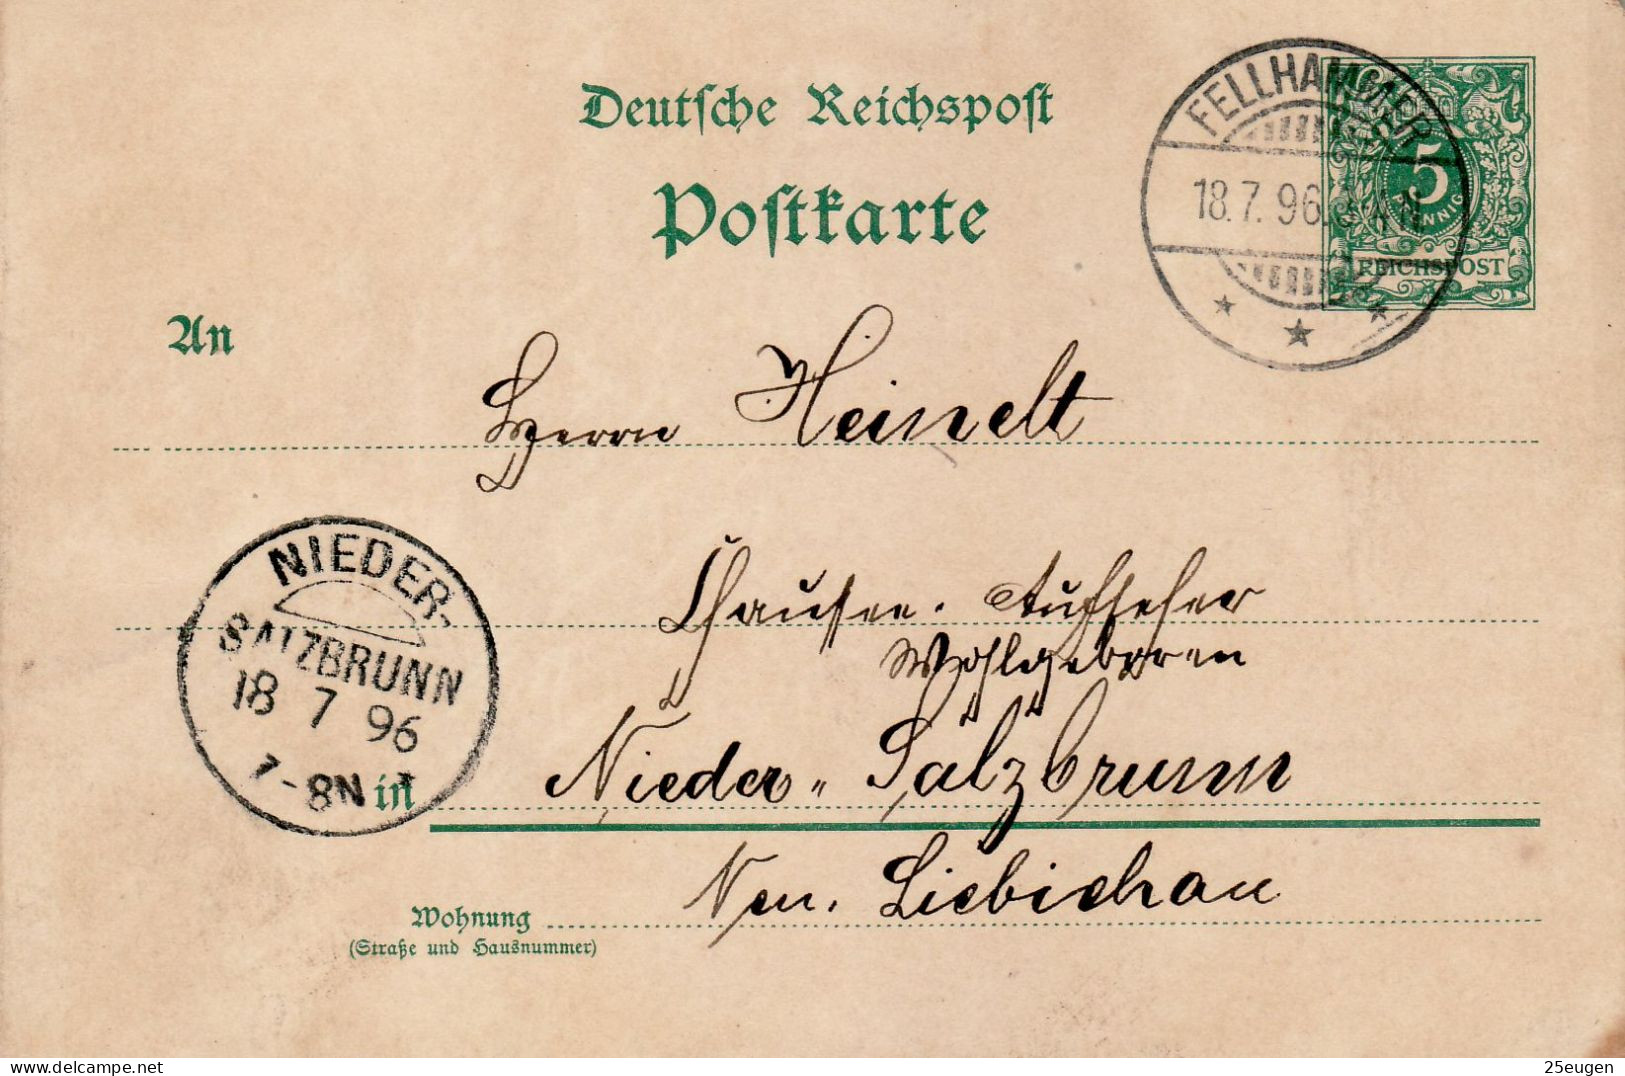 Deutsche Reichspost
Postkarte
FELLHAMMER
18.7.96.
5
PFENNIG
REICHSPOST
An
Herrn Heinelt
Chaussee-Aufseher
Wohlgeboren
NIEDER-
SALZBRUNN
18 7 96
7-8N
in Nieder-Salzbrunn
Neu-Liebichau
Wohnung
(Straße und Hausnummer)
25eugen